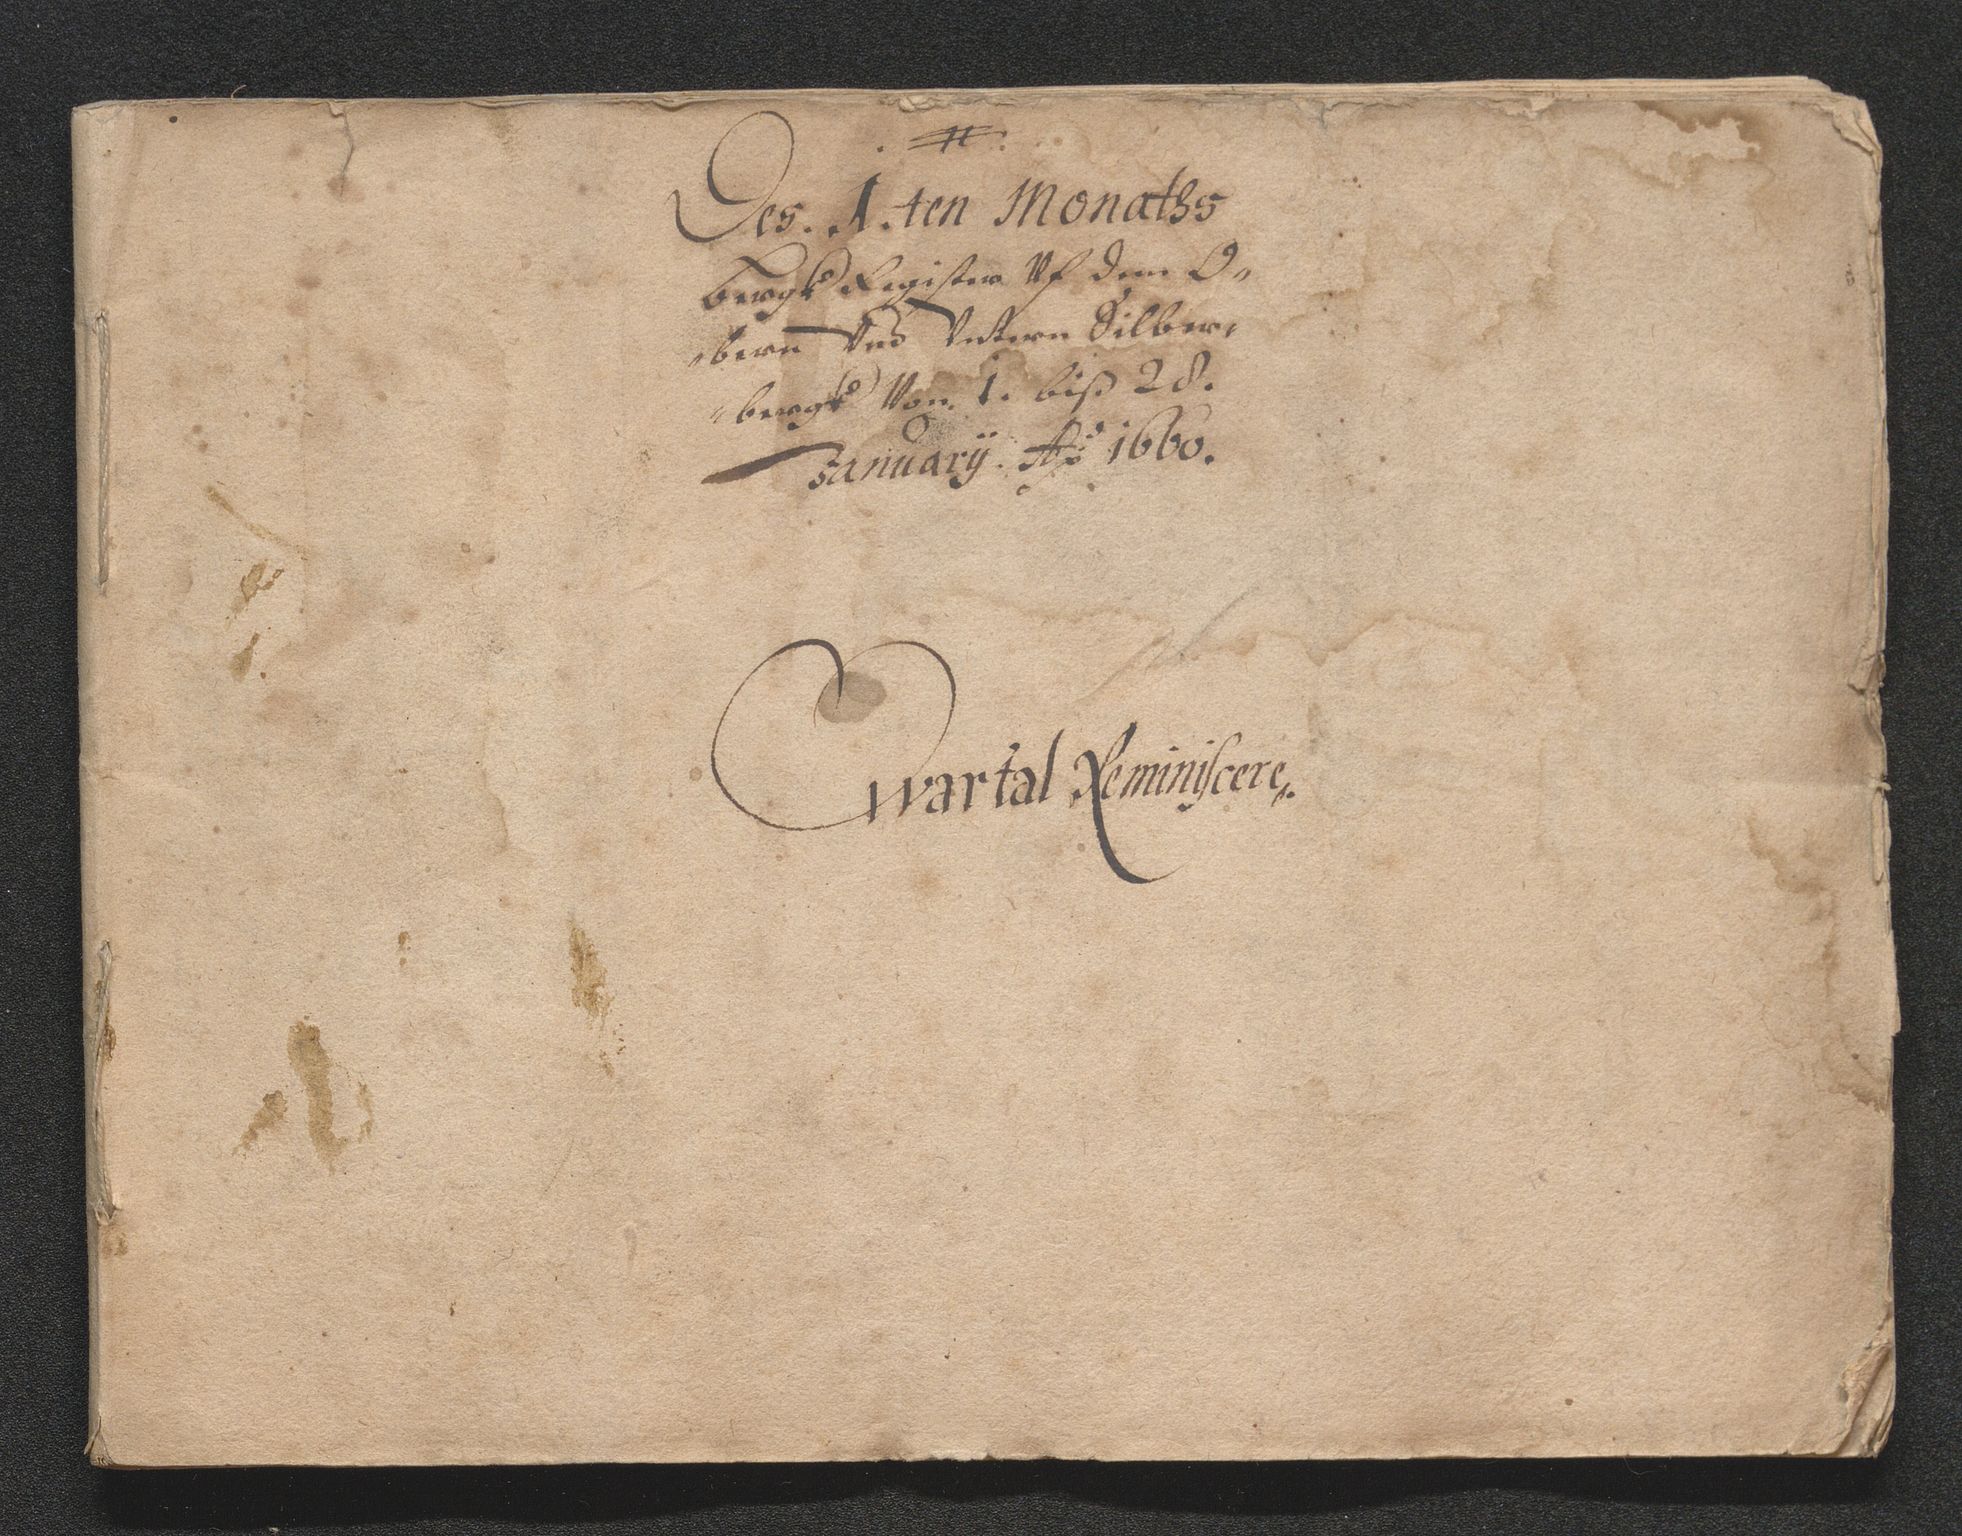 Des. 1.ten Monaths
Bergk Register Vf dem O-
-bern Vnd Vntern Silber-
-bergk Von. 1. biß 28.
January. Ao 1660.
Qwartal Reminiscere.